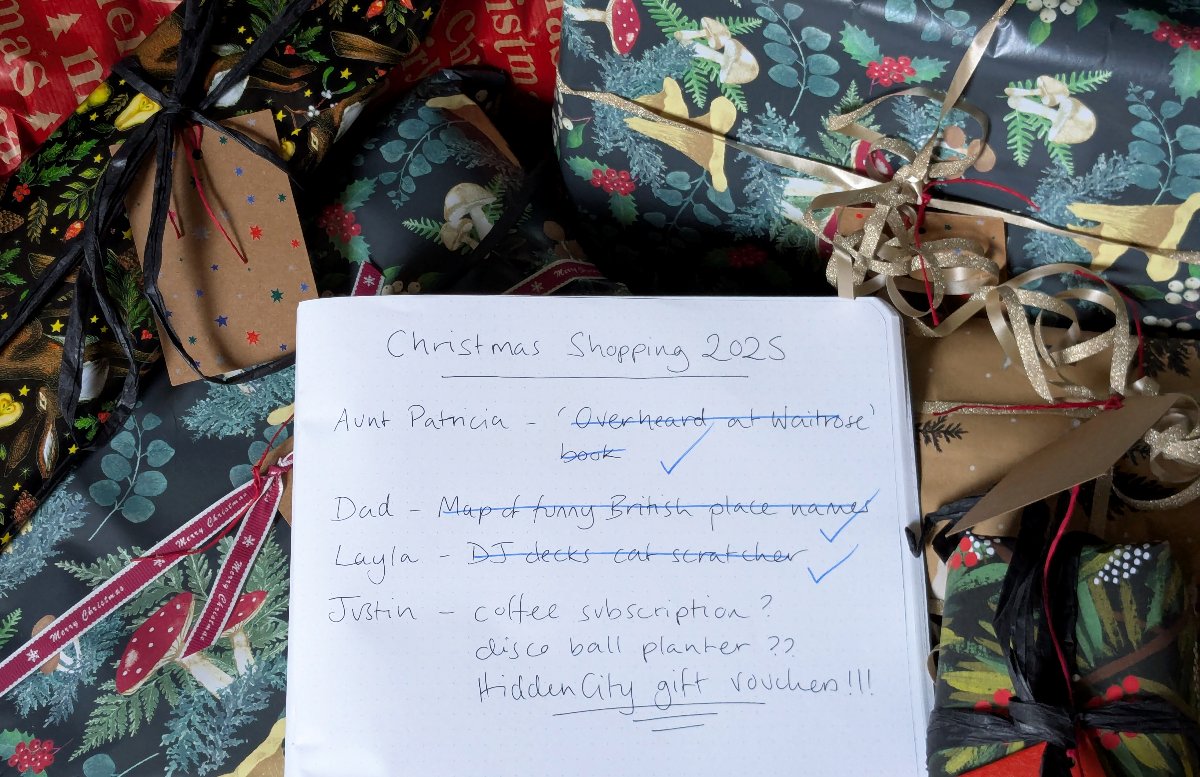 Christmas Shopping 2025
Aunt Patricia - 'Overheard at Waitrose'
book
Dad - Map of funny British place names
Layla - DJ decks cat scratcher
Justin - coffee subscription?
disco ball planter ??
HiddenCity gift vouchers!!!
Merry Christmas
Merry Christmas
Merry Christmas
Merry Christmas